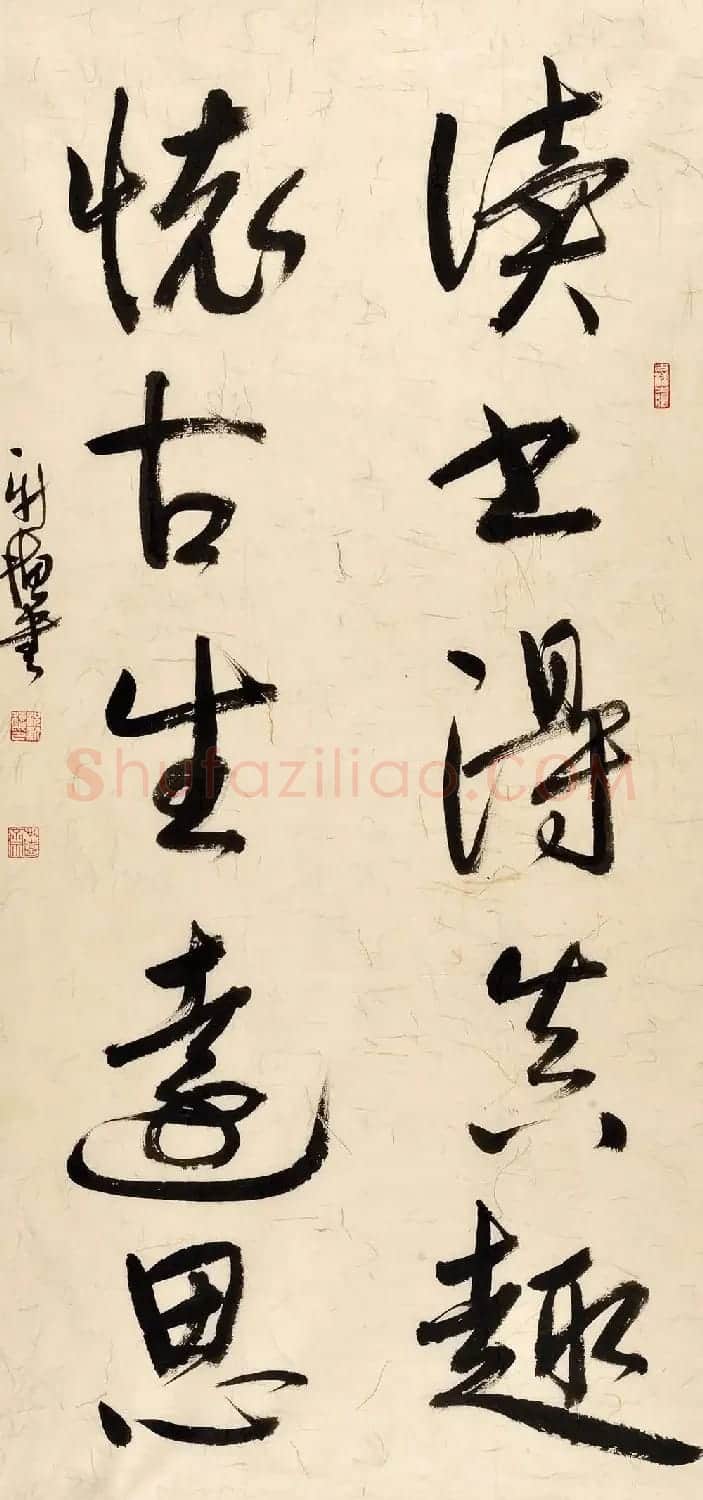 读书得真趣
怀古生远思
Shufaziliao.COM